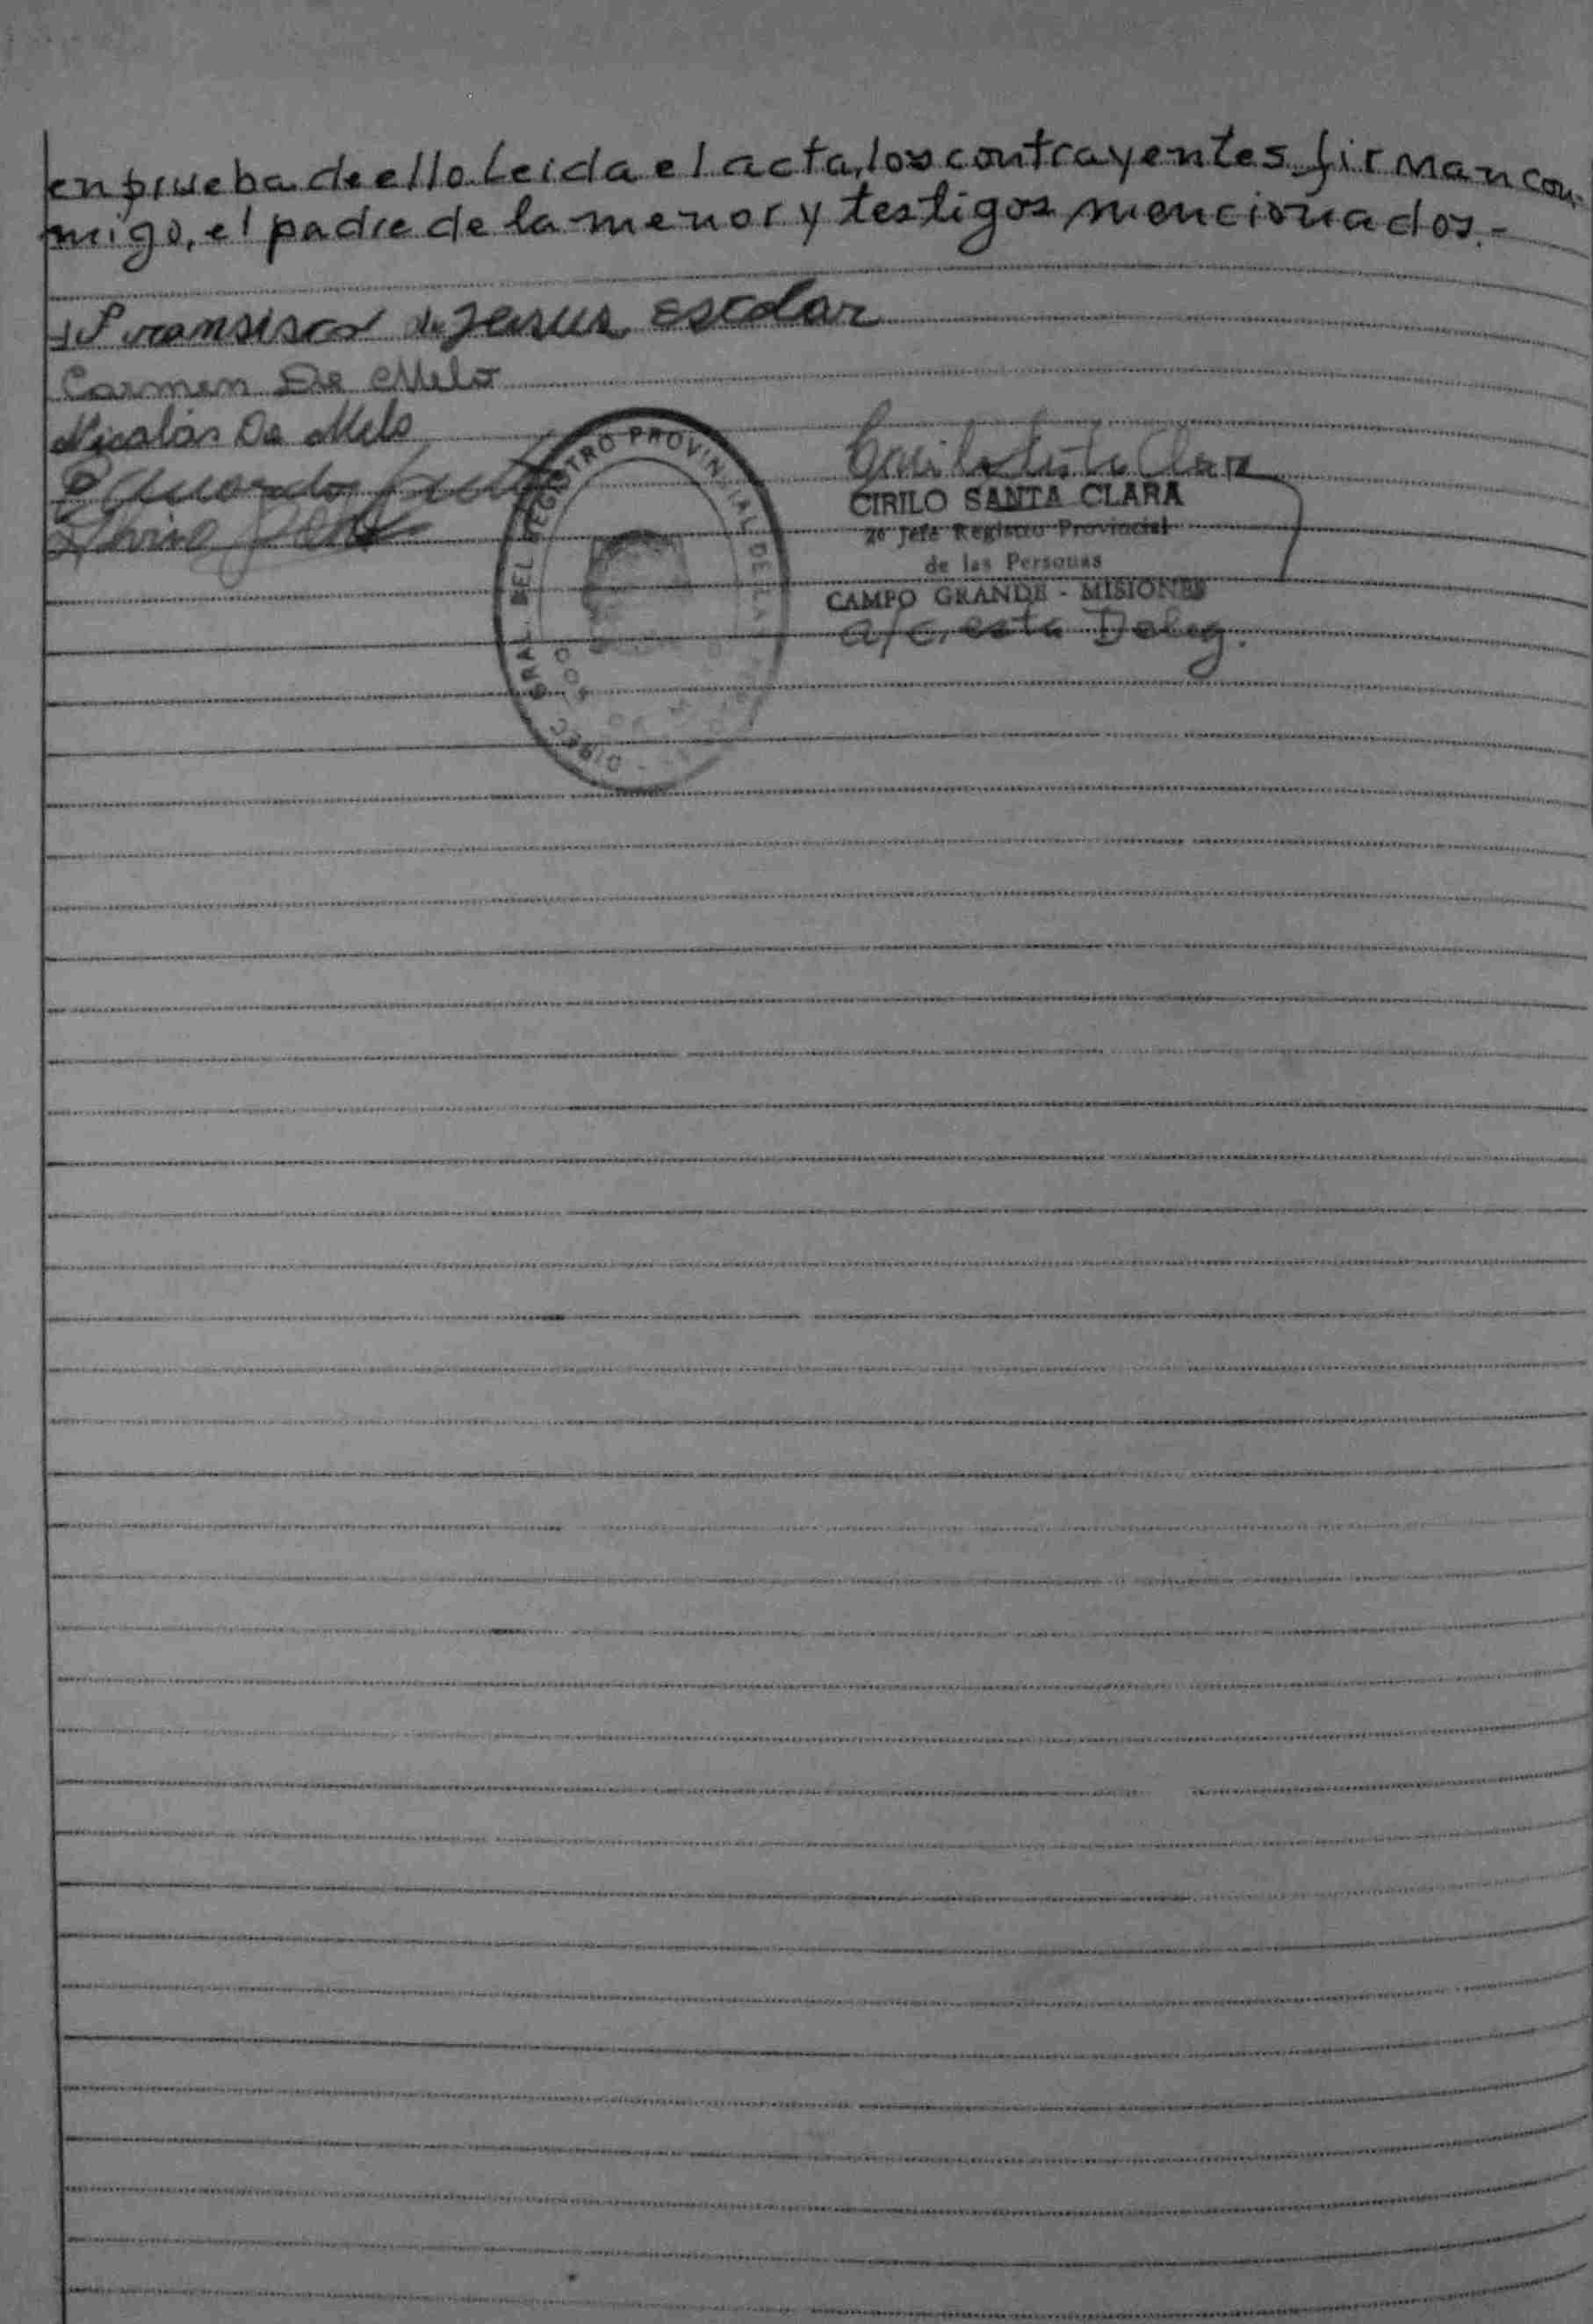 en prueba de ello. Leida el acta, los contrayentes firman con-
migo, el padre de la menor y testigos mencionados.-
Fransisco de Jesus escolar
Carmen De Melo
Nicolás De Melo
Eduardo
Cirilo Santa Clara
CIRILO SANTA CLARA
2º Jefe Registro Provincial
de las Personas
CAMPO GRANDE - MISIONES
a/c, esta Deleg.
DIREC GRAL. DEL REGISTRO PROVINCIAL DE LA